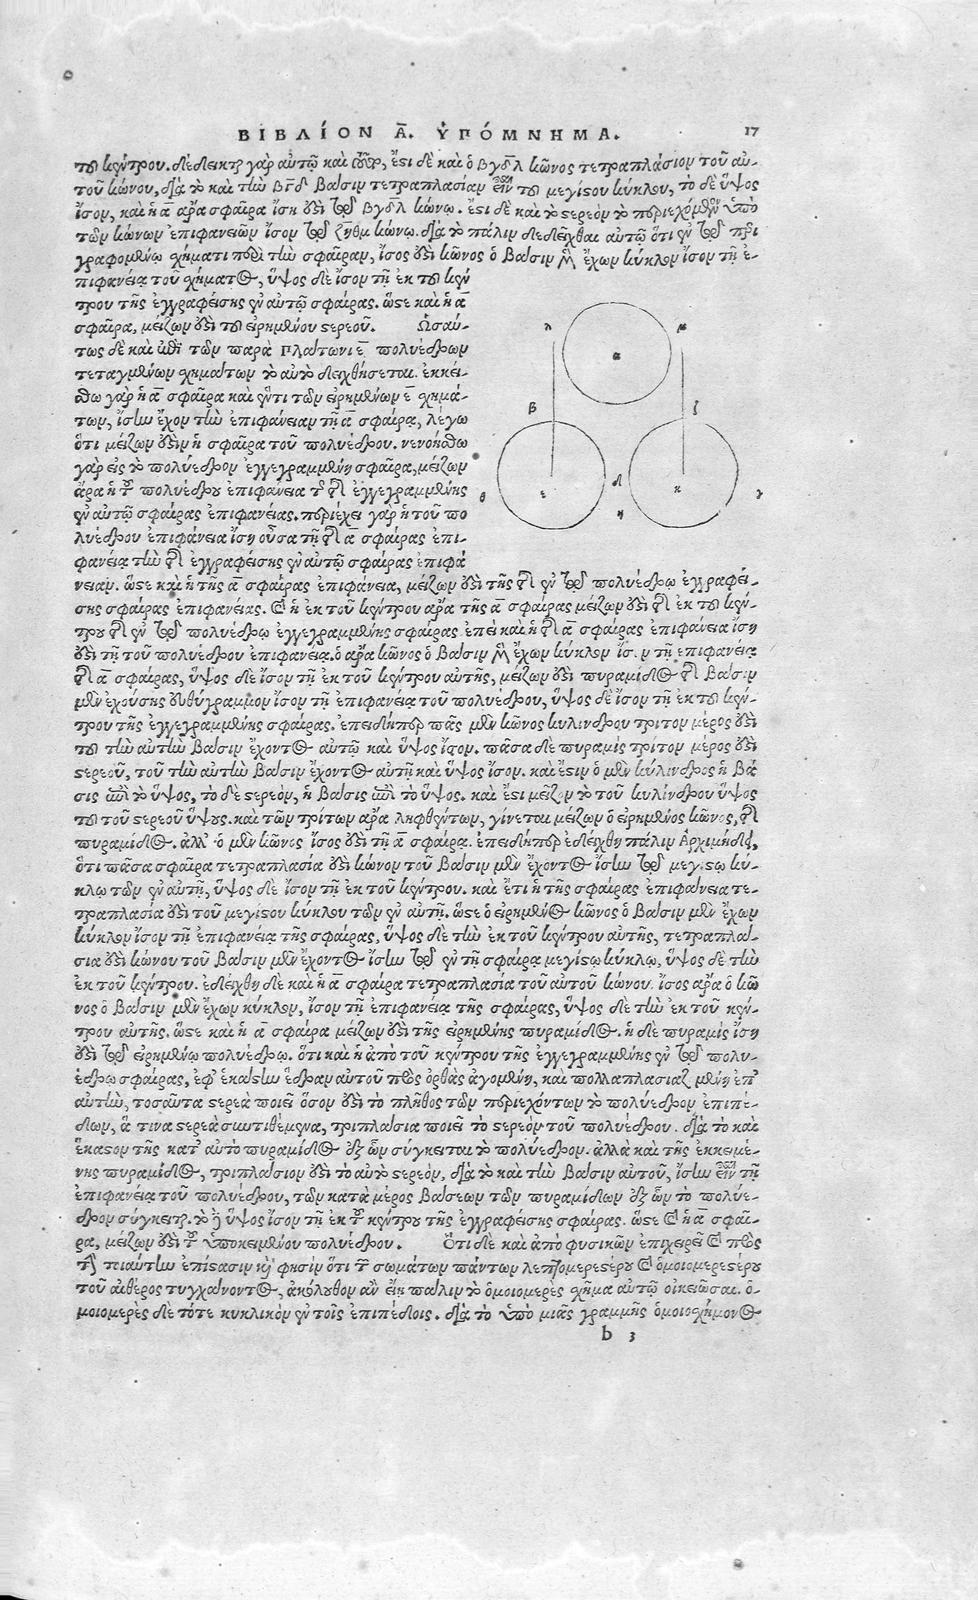 ΒΙΒΛΙΟΝ Α̅. ὙΠΟΜΝΗΜΑ. 17
τοῦ κέντρου. δέδεικται γὰρ αὐτῷ καὶ τοῦτο, ἔστι δὲ καὶ ὁ βγδλ κῶνος τετραπλάσιον τοῦ αὐ-
τοῦ κώνου, διὰ τὸ καὶ τὴν βγδ βάσιν τετραπλασίαν εἶναι τοῦ μεγίστου κύκλου, τὸ δὲ ὕψος
ἴσον, καὶ ἡ α̅ ἄρα σφαῖρα ἴση ἐστὶ τῷ βγδλ κώνῳ. ἔστι δὲ καὶ τὸ στερεὸν τὸ περιεχόμενον ὑπὸ
τῶν κώνων ἐπιφανειῶν ἴσον τῷ ζηθμ κώνῳ. διὰ τὸ πάλιν δεδεῖχθαι αὐτῷ ὅτι ἐν τῷ περι
γραφομένῳ σχήματι περὶ τὴν σφαῖραν, ἴσος ἐστὶ κῶνος ὁ βάσιν μὲν ἔχων κύκλον ἴσον τῇ ἐ-
πιφανείᾳ τοῦ σχήματος, ὕψος δὲ ἴσον τῇ ἐκ τοῦ κέν
τρου τῆς ἐγγραφείσης ἐν αὐτῷ σφαίρας. ὥστε καὶ ἡ α̅
σφαῖρα, μείζων ἐστὶ τοῦ εἰρημένου στερεοῦ. Ὡσαύ-
τως δὲ καὶ ἐπὶ τῶν παρὰ Πλάτωνι ε̅ πολυέδρων
τεταγμένων σχημάτων τὸ αὐτὸ δειχθήσεται. ἐκκεί-
σθω γὰρ ἡ α̅ σφαῖρα καὶ ἕν τι τῶν εἰρημένων ε̅ σχημά-
των, ἴσην ἔχον τὴν ἐπιφάνειαν τῇ α̅ σφαίρᾳ, λέγω
ὅτι μείζων ἐστὶν ἡ σφαῖρα τοῦ πολυέδρου. νενοήσθω
γὰρ εἰς τὸ πολύεδρον ἐγγεγραμμένη σφαῖρα, μείζων
ἄρα ἡ τοῦ πολυέδρου ἐπιφάνεια τῆς ἐγγεγραμμένης
ἐν αὐτῷ σφαίρας ἐπιφανείας. περιέχει γὰρ ἡ τοῦ πο
λυέδρου ἐπιφάνεια ἴση οὖσα τῇ τῆς α̅ σφαίρας ἐπι-
φανείᾳ τὴν τῆς ἐγγραφείσης ἐν αὐτῷ σφαίρας ἐπιφά
νειαν. ὥστε καὶ ἡ τῆς α̅ σφαίρας ἐπιφάνεια, μείζων ἐστὶ τῆς τῆς ἐν τῷ πολυέδρῳ ἐγγραφεί-
σης σφαίρας ἐπιφανείας. καὶ ἡ ἐκ τοῦ κέντρου ἄρα τῆς α̅ σφαίρας μείζων ἐστὶ τῆς ἐκ τοῦ κέν-
τρου τῆς ἐν τῷ πολυέδρῳ ἐγγεγραμμένης σφαίρας ἐπεὶ καὶ ἡ τῆς α̅ σφαίρας ἐπιφάνεια ἴση
ἐστὶ τῇ τοῦ πολυέδρου ἐπιφανείᾳ. ὁ ἄρα κῶνος ὁ βάσιν μὲν ἔχων κύκλον ἴσον τῇ ἐπιφανείᾳ
τῆς α̅ σφαίρας, ὕψος δὲ ἴσον τῇ ἐκ τοῦ κέντρου αὐτῆς, μείζων ἐστὶ πυραμίδος τῆς βάσιν
μὲν ἐχούσης εὐθύγραμμον ἴσον τῇ ἐπιφανείᾳ τοῦ πολυέδρου, ὕψος δὲ ἴσον τῇ ἐκ τοῦ κέν-
τρου τῆς ἐγγεγραμμένης σφαίρας. ἐπειδήπερ πᾶς μὲν κῶνος κυλίνδρου τρίτον μέρος ἐστὶ
τοῦ τὴν αὐτὴν βάσιν ἔχοντος αὐτῷ καὶ ὕψος ἴσον. πᾶσα δὲ πυραμὶς τρίτον μέρος ἐστὶ
στερεοῦ, τοῦ τὴν αὐτὴν βάσιν ἔχοντος αὐτῇ καὶ ὕψος ἴσον. καὶ ἔστιν ὁ μὲν κύλινδρος ἡ βά
σις ἐπὶ τὸ ὕψος, τὸ δὲ στερεὸν, ἡ βάσις ἐπὶ τὸ ὕψος. καὶ ἔστι μεῖζον τὸ τοῦ κυλίνδρου ὕψος
τοῦ τοῦ στερεοῦ ὕψους. καὶ τῶν τρίτων ἄρα ληφθέντων, γίνεται μείζων ὁ εἰρημένος κῶνος, τῆς
πυραμίδος. ἀλλ' ὁ μὲν κῶνος ἴσος ἐστὶ τῇ α̅ σφαίρᾳ. ἐπειδήπερ ἐδείχθη πάλιν Ἀρχιμήδει,
ὅτι πᾶσα σφαῖρα τετραπλασία ἐστὶ κώνου τοῦ βάσιν μὲν ἔχοντος ἴσην τῷ μεγίστῳ κύ-
κλῳ τῶν ἐν αὐτῇ, ὕψος δὲ ἴσον τῇ ἐκ τοῦ κέντρου. καὶ ἔτι ἡ τῆς σφαίρας ἐπιφάνεια τε-
τραπλασία ἐστὶ τοῦ μεγίστου κύκλου τῶν ἐν αὐτῇ. ὥστε ὁ εἰρημένος κῶνος ὁ βάσιν μὲν ἔχων
κύκλον ἴσον τῇ ἐπιφανείᾳ τῆς σφαίρας, ὕψος δὲ τὴν ἐκ τοῦ κέντρου αὐτῆς, τετραπλα-
σία ἐστὶ κώνου τοῦ βάσιν μὲν ἔχοντος ἴσην τῷ ἐν τῇ σφαίρᾳ μεγίστῳ κύκλῳ, ὕψος δὲ τὴν
ἐκ τοῦ κέντρου. ἐδείχθη δὲ καὶ ἡ α̅ σφαῖρα τετραπλασία τοῦ αὐτοῦ κώνου. ἴσος ἄρα ὁ κῶ
νος ὁ βάσιν μὲν ἔχων κύκλον, ἴσον τῇ ἐπιφανείᾳ τῆς σφαίρας, ὕψος δὲ τὴν ἐκ τοῦ κέν-
τρου αὐτῆς. ὥστε καὶ ἡ α̅ σφαῖρα μείζων ἐστὶ τῆς εἰρημένης πυραμίδος. ἡ δὲ πυραμὶς ἴση
ἐστὶ τῷ εἰρημένῳ πολυέδρῳ. ὅτι καὶ ἡ ἀπὸ τοῦ κέντρου τῆς ἐγγεγραμμένης ἐν τῷ πολυ-
έδρῳ σφαίρας, ἐφ' ἑκάστην ἕδραν αὐτοῦ πρὸς ὀρθὰς ἀγομένη, καὶ πολλαπλασιαζομένη ἐπ'
αὐτὴν, τοσαῦτα στερεὰ ποιεῖ ὅσον ἐστὶ τὸ πλῆθος τῶν περιεχόντων τὸ πολύεδρον ἐπιπέ-
δων, ἅ τινα στερεὰ συντιθέμενα, τριπλάσια ποιεῖ τὸ στερεὸν τοῦ πολυέδρου. διὰ τὸ καὶ
ἕκαστον τῆς κατ' αὐτὸ πυραμίδος ἐξ ὧν σύγκειται τὸ πολύεδρον. ἀλλὰ καὶ τῆς ἐκκειμέ-
νης πυραμίδος, τριπλάσιον ἐστὶ τὸ αὐτὸ στερεὸν, διὰ τὸ καὶ τὴν βάσιν αὐτοῦ, ἴσην εἶναι τῇ
ἐπιφανείᾳ τοῦ πολυέδρου, τῶν κατὰ μέρος βάσεων τῶν πυραμίδων ἐξ ὧν τὸ πολύε-
δρον σύγκειται. τὸ δὲ ὕψος ἴσον τῇ ἐκ τοῦ κέντρου τῆς ἐγγραφείσης σφαίρας. ὥστε καὶ ἡ α̅ σφαῖ-
ρα, μείζων ἐστὶ τοῦ ὑποκειμένου πολυέδρου. Ὅτι δὲ καὶ ἀπὸ φυσικῶν ἐπιχειρεῖ καὶ πρὸς
τὴν τοιαύτην ἐπίστασιν καὶ φησὶν ὅτι τῶν σωμάτων πάντων λεπτομερεστέρου καὶ ὁμοιομερεστέρου
τοῦ αἰθέρος τυγχάνοντος, ἀκόλουθον ἂν εἴη πάλιν τὸ ὁμοιομερὲς σχῆμα αὐτῷ οἰκειῶσαι. ὁ-
μοιομερὲς δὲ τότε κυκλικὸν ἐν τοῖς ἐπιπέδοις. διὰ τὸ ὑπὸ μιᾶς γραμμῆς ὁμοιοσχήμονος
b 3
λ μ
α
β ζ
θ ε δ κ γ
η